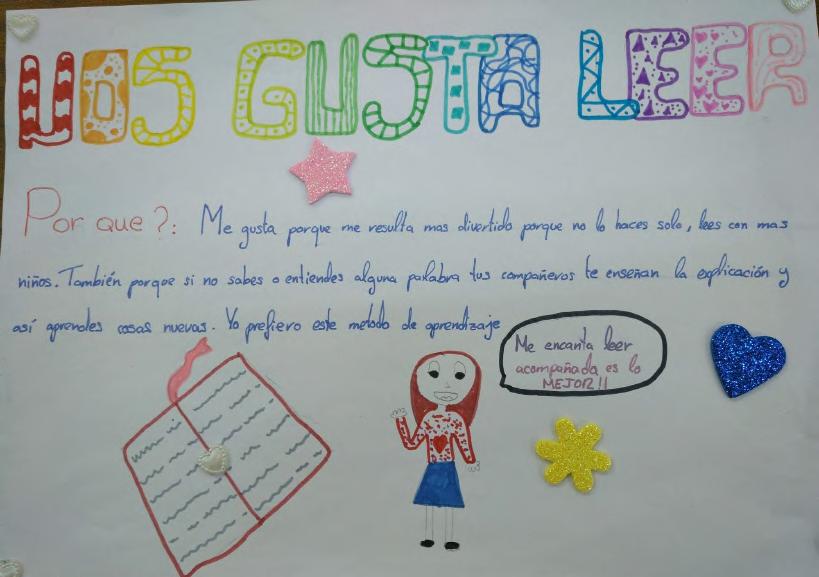 NOS GUSTA LEER
Por que ?: Me gusta porque me resulta mas divertido porque no lo haces solo, lees con mas
niños. También porque si no sabes o entiendes alguna palabra tus compañeros te enseñan la explicación y
así aprendes cosas nuevas. Yo prefiero este metodo de aprendizaje
Me encanta leer
acompañada es lo
MEJOR!!